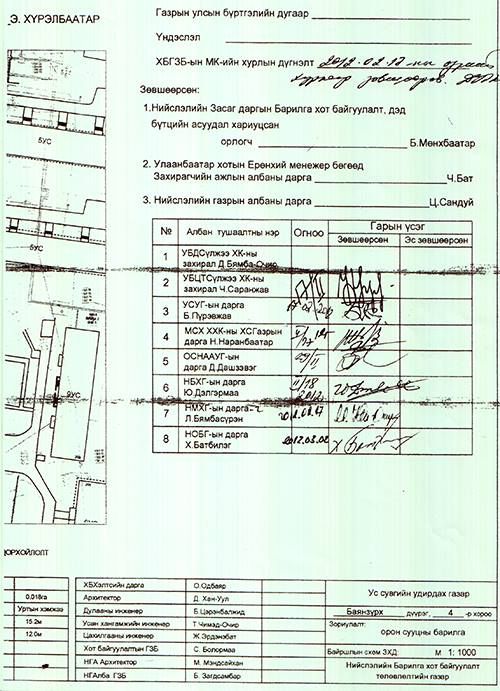 Э. ХҮРЭЛБААТАР
Газрын улсын бүртгэлийн дугаар
Үндэслэл
ХБГЗБ-ын МК-ийн хурлын дүгнэлт 2012.02.12-ны
Зөвшөөрсөн:
1.Нийслэлийн Засаг даргын Барилга хот байгуулалт, дэд
бүтцийн асуудал хариуцсан
орлогч Б.Мөнхбаатар
2. Улаанбаатар хотын Ерөнхий менежер бөгөөд
Захирагчийн ажлын албаны дарга Ч.Бат
3. Нийслэлийн газрын албаны дарга Ц.Сандуй
№ Албан тушаалтны нэр Огноо Гарын үсэг
Зөвшөөрсөн Эс зөвшөөрсөн
1 УБДСүлжээ ХК-ны
захирал Д.Бямба-Очир
2 УБЦТСүлжээ ХК-ны
захирал Ч.Саранжав
3 УСУГ-ын дарга
Б.Пүрэвжав
4 МСХ ХХК-ны ХСГазрын
дарга Н.Наранбаатар
5 ОСНААУГ-ын
дарга Д.Дашзэвэг
6 НБХГ-ын дарга 11/18
Ю.Дэлгэрмаа 2012
7 НМХГ-ын дарга
Л.Бямбасүрэн
8 НОБГ-ын дарга 2012.03.02
Х.Батбилэг
5УС
5УС
9УС
ХБХэлтсийн дарга О.Одбаяр
0,018га Архитектор Д. Хан-Уул
Уртын хэмжээ Дулааны инженер Б.Цэрэнбалжид
15.2м Усан хангамжийн инженер Т.Чимэд-Очир
12.0м Цахилгааны инженер Ж.Эрдэнэбат
Хот байгуулалтын ГЗБ С. Болормаа
НГА Архитектор М. Мэндсайхан
НГАлба ГЗБ Б. Загдсамбар
Ус сувгийн удирдах газар
Баянзүрх дүүрэг, 4 -р хороо
Зориулалт:
орон сууцны барилга
Байршлын схем ЗХД: М 1: 1000
Нийслэлийн Барилга хот байгуулалт
төлөвлөлтийн газар